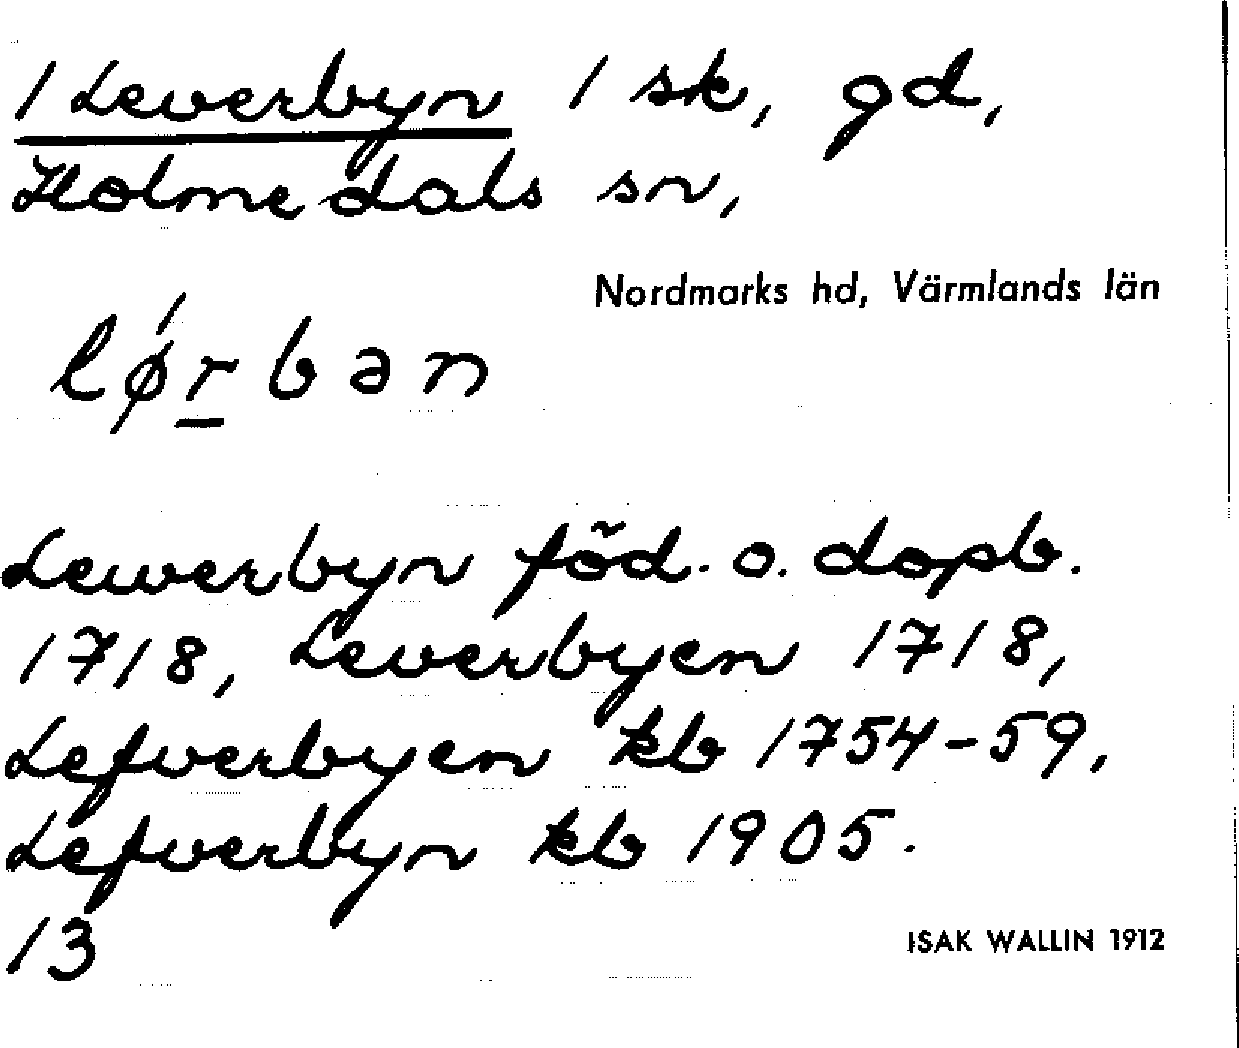 / Leverbyn / sk, gd,
Holmedals sn,
Nordmarks hd, Värmlands län
lǿrbən
Lewerbyn föd. o. dopb.
1718, Leverbyen 1718,
Lefverbyen kb 1754-59,
Lefverbyn kb 1905.
13
ISAK WALLIN 1912